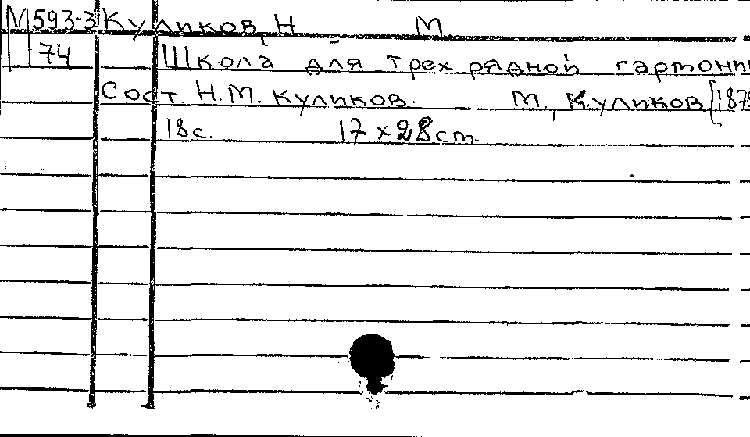 М 593-3 Куликов, Н М.
74 Школа для трехрядной гармони
Сост Н.М. Куликов. М., Куликов [187
18с. 17 x 28 cm